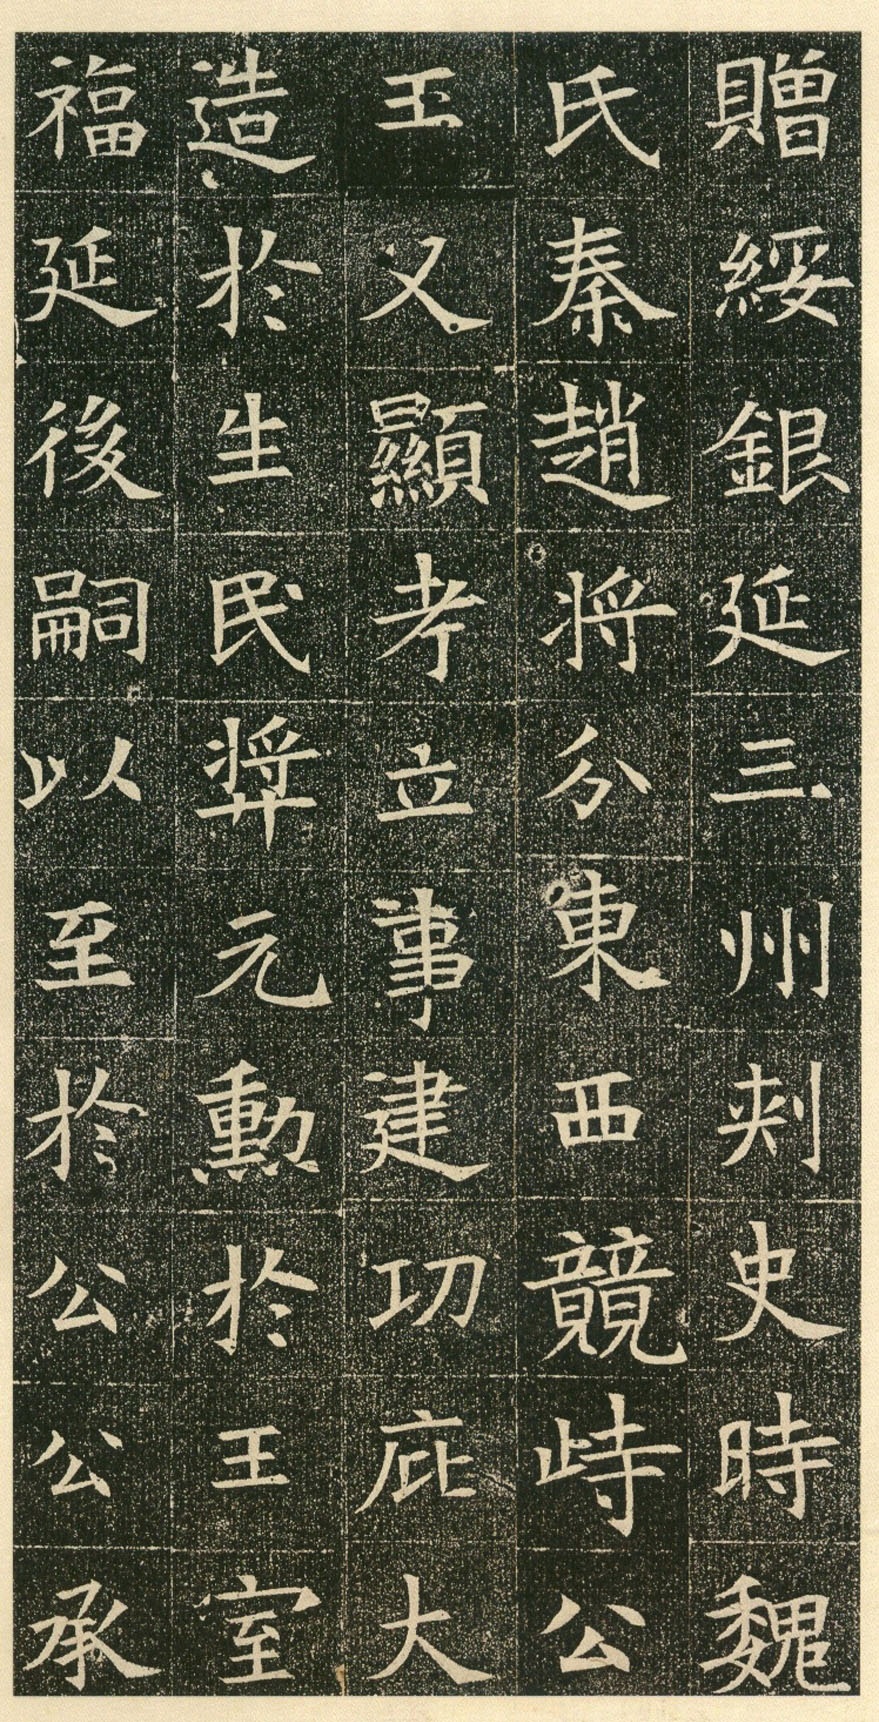 贈綏銀延三州刾史時魏
氏秦趙將分東西競峙公
王又顯考立事建功庇大
造於生民弉元勲於王室
福延後嗣以至於公公承